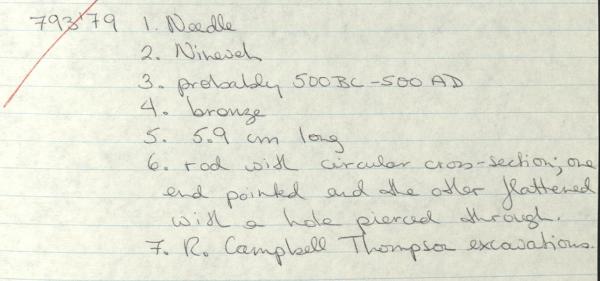 793'79 1. Needle
2. Nineveh
3. probably 500 BC - 500 AD
4. bronze
5. 5.9 cm long
6. rod with circular cross-section; one
end pointed and the other flattened
with a hole pierced through.
7. R. Campbell Thompson excavations.